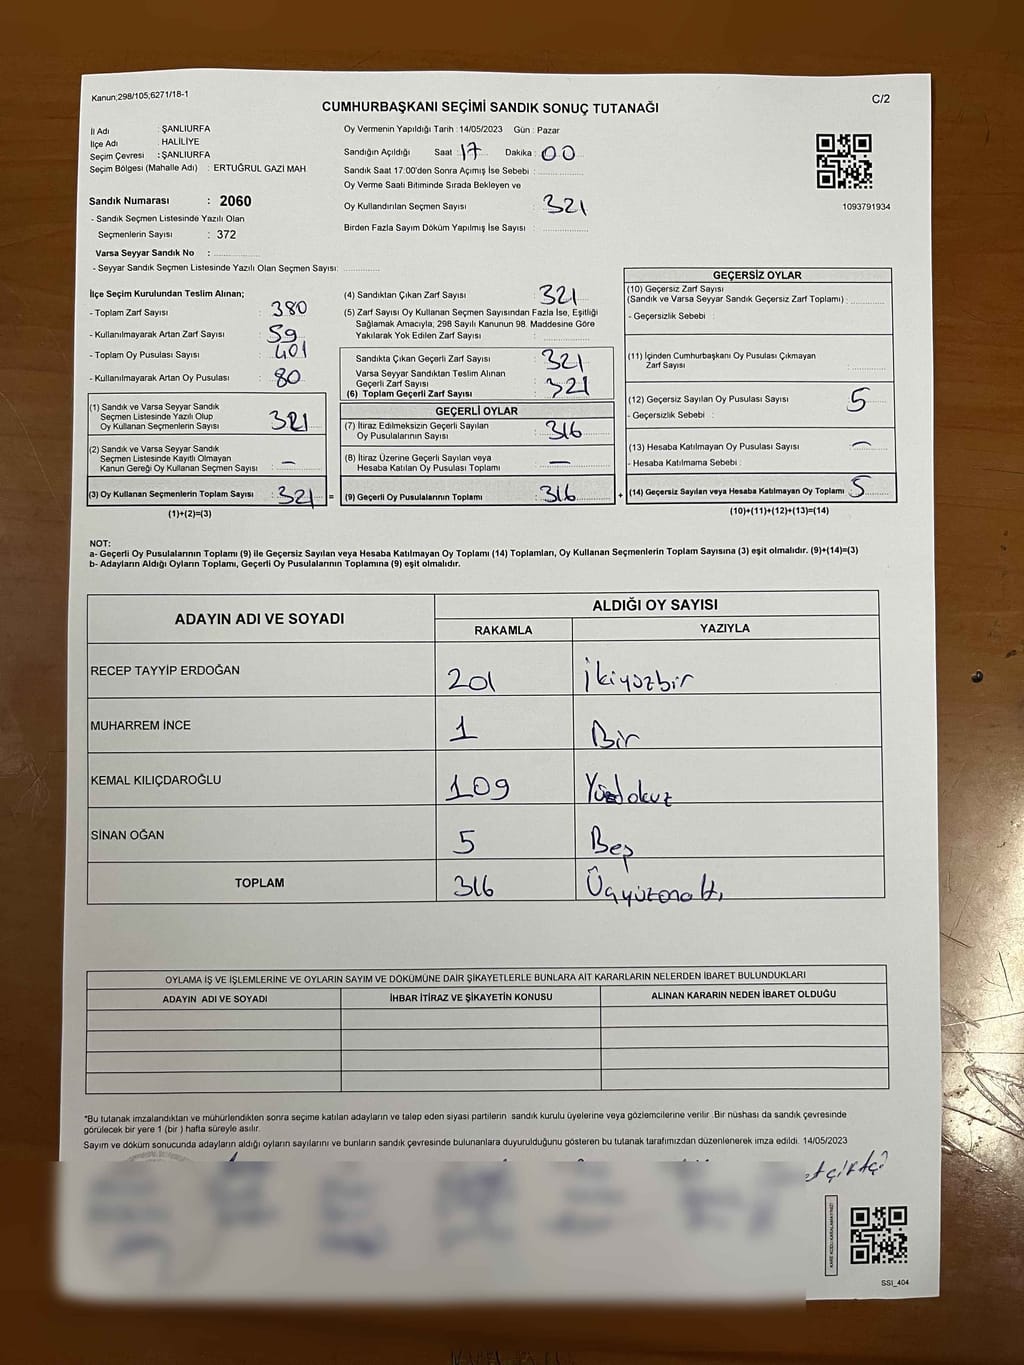 Kanun;298/105,6271/18-1
CUMHURBAŞKANI SEÇİMİ SANDIK SONUÇ TUTANAĞI
C/2
İl Adı : ŞANLIURFA
İlçe Adı : HALİLİYE
Seçim Çevresi : ŞANLIURFA
Seçim Bölgesi (Mahalle Adı) : ERTUĞRUL GAZİ MAH
Sandık Numarası : 2060
- Sandık Seçmen Listesinde Yazılı Olan
Seçmenlerin Sayısı : 372
Varsa Seyyar Sandık No :
- Seyyar Sandık Seçmen Listesinde Yazılı Olan Seçmen Sayısı:
Oy Vermenin Yapıldığı Tarih : 14/05/2023 Gün : Pazar
Sandığın Açıldığı Saat 17 Dakika : 00
Sandık Saat 17:00'den Sonra Açımış İse Sebebi :
Oy Verme Saati Bitiminde Sırada Bekleyen ve
Oy Kullandırılan Seçmen Sayısı : 321
Birden Fazla Sayım Döküm Yapılmış İse Sayısı :
1093791934
İlçe Seçim Kurulundan Teslim Alınan;
- Toplam Zarf Sayısı : 380
- Kullanılmayarak Artan Zarf Sayısı : 59
- Toplam Oy Pusulası Sayısı : 401
- Kullanılmayarak Artan Oy Pusulası : 80
(1) Sandık ve Varsa Seyyar Sandık
Seçmen Listesinde Yazılı Olup
Oy Kullanan Seçmenlerin Sayısı : 321
(2) Sandık ve Varsa Seyyar Sandık
Seçmen Listesinde Kayıtlı Olmayan
Kanun Gereği Oy Kullanan Seçmen Sayısı : —
(3) Oy Kullanan Seçmenlerin Toplam Sayısı : 321 =
(1)+(2)=(3)
(4) Sandıktan Çıkan Zarf Sayısı : 321
(5) Zarf Sayısı Oy Kullanan Seçmen Sayısından Fazla İse, Eşitliği
Sağlamak Amacıyla, 298 Sayılı Kanunun 98. Maddesine Göre
Yakılarak Yok Edilen Zarf Sayısı :
Sandıkta Çıkan Geçerli Zarf Sayısı : 321
Varsa Seyyar Sandıktan Teslim Alınan
Geçerli Zarf Sayısı :
(6) Toplam Geçerli Zarf Sayısı : 321
GEÇERLİ OYLAR
(7) İtiraz Edilmeksizin Geçerli Sayılan
Oy Pusulalarının Sayısı : 316
(8) İtiraz Üzerine Geçerli Sayılan veya
Hesaba Katılan Oy Pusulası Toplamı : —
(9) Geçerli Oy Pusulalarının Toplamı : 316 +
GEÇERSİZ OYLAR
(10) Geçersiz Zarf Sayısı
(Sandık ve Varsa Seyyar Sandık Geçersiz Zarf Toplamı) :
- Geçersizlik Sebebi :
(11) İçinden Cumhurbaşkanı Oy Pusulası Çıkmayan
Zarf Sayısı :
(12) Geçersiz Sayılan Oy Pusulası Sayısı : 5
- Geçersizlik Sebebi :
(13) Hesaba Katılmayan Oy Pusulası Sayısı : —
- Hesaba Katılmama Sebebi :
(14) Geçersiz Sayılan veya Hesaba Katılmayan Oy Toplamı : 5
(10)+(11)+(12)+(13)=(14)
NOT:
a- Geçerli Oy Pusulalarının Toplamı (9) ile Geçersiz Sayılan veya Hesaba Katılmayan Oy Toplamı (14) Toplamları, Oy Kullanan Seçmenlerin Toplam Sayısına (3) eşit olmalıdır. (9)+(14)=(3)
b- Adayların Aldığı Oyların Toplamı, Geçerli Oy Pusulalarının Toplamına (9) eşit olmalıdır.
ADAYIN ADI VE SOYADI
ALDIĞI OY SAYISI
RAKAMLA YAZIYLA
RECEP TAYYİP ERDOĞAN 201 İkiyüzbir
MUHARREM İNCE 1 Bir
KEMAL KILIÇDAROĞLU 109 Yüzdokuz
SİNAN OĞAN 5 Beş
TOPLAM 316 Üçyüzonaltı
OYLAMA İŞ VE İŞLEMLERİNE VE OYLARIN SAYIM VE DÖKÜMÜNE DAİR ŞİKAYETLERLE BUNLARA AİT KARARLARIN NELERDEN İBARET BULUNDUKLARI
ADAYIN ADI VE SOYADI İHBAR İTİRAZ VE ŞİKAYETİN KONUSU ALINAN KARARIN NEDEN İBARET OLDUĞU
*Bu tutanak imzalandıktan ve mühürlendikten sonra seçime katılan adayların ve talep eden siyasi partilerin sandık kurulu üyelerine veya gözlemcilerine verilir .Bir nüshası da sandık çevresinde
görülecek bir yere 1 (bir ) hafta süreyle asılır.
Sayım ve döküm sonucunda adayların aldığı oyların sayılarını ve bunların sandık çevresinde bulunanlara duyurulduğunu gösteren bu tutanak tarafımızdan düzenlenerek imza edildi. 14/05/2023
KARE KODU KARALAMAYINIZ!
SSI_404